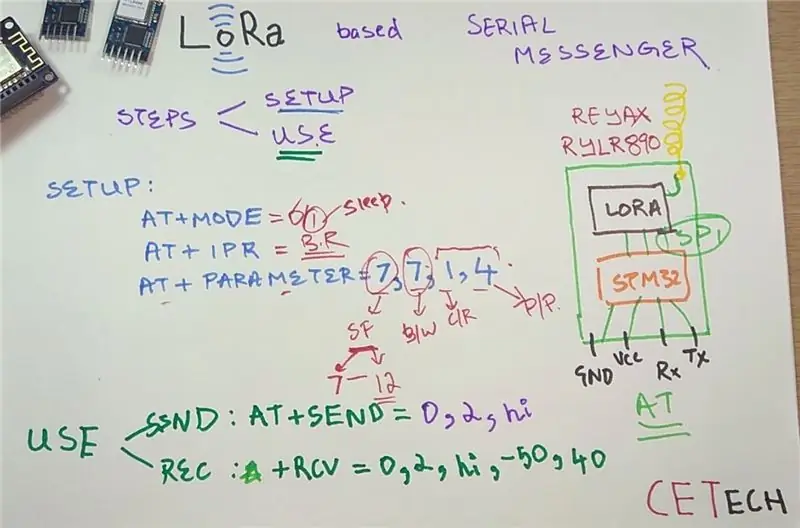 LoRa based SERIAL
MESSENGER
STEPS
SETUP
USE
REYAX
RYLR890
LORA
SPI
STM32
GND
VCC
Rx
Tx
AT
SETUP:
AT+MODE = 0/1 sleep.
AT+IPR = B.R
AT+PARAMETER=7,7,1,4
SF
B/W
C/R
P/P.
7 - 12
USE
SEND : AT+SEND = 0,2,hi
REC : +RCV = 0,2,hi,-50,40
CETECH